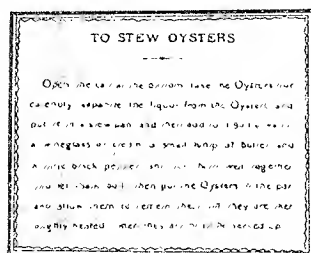 TO STEW OYSTERS
Open the can at the bottom take the Oysters out
carefully separate the liquor from the Oysters and
put it in a stew pan and then add to
a wineglass of cream a small lump of butter and
a little black pepper them well together
and let them boil then put the Oysters in the pan
and allow them to remain there till they are thor
oughly heated when they are to be served up